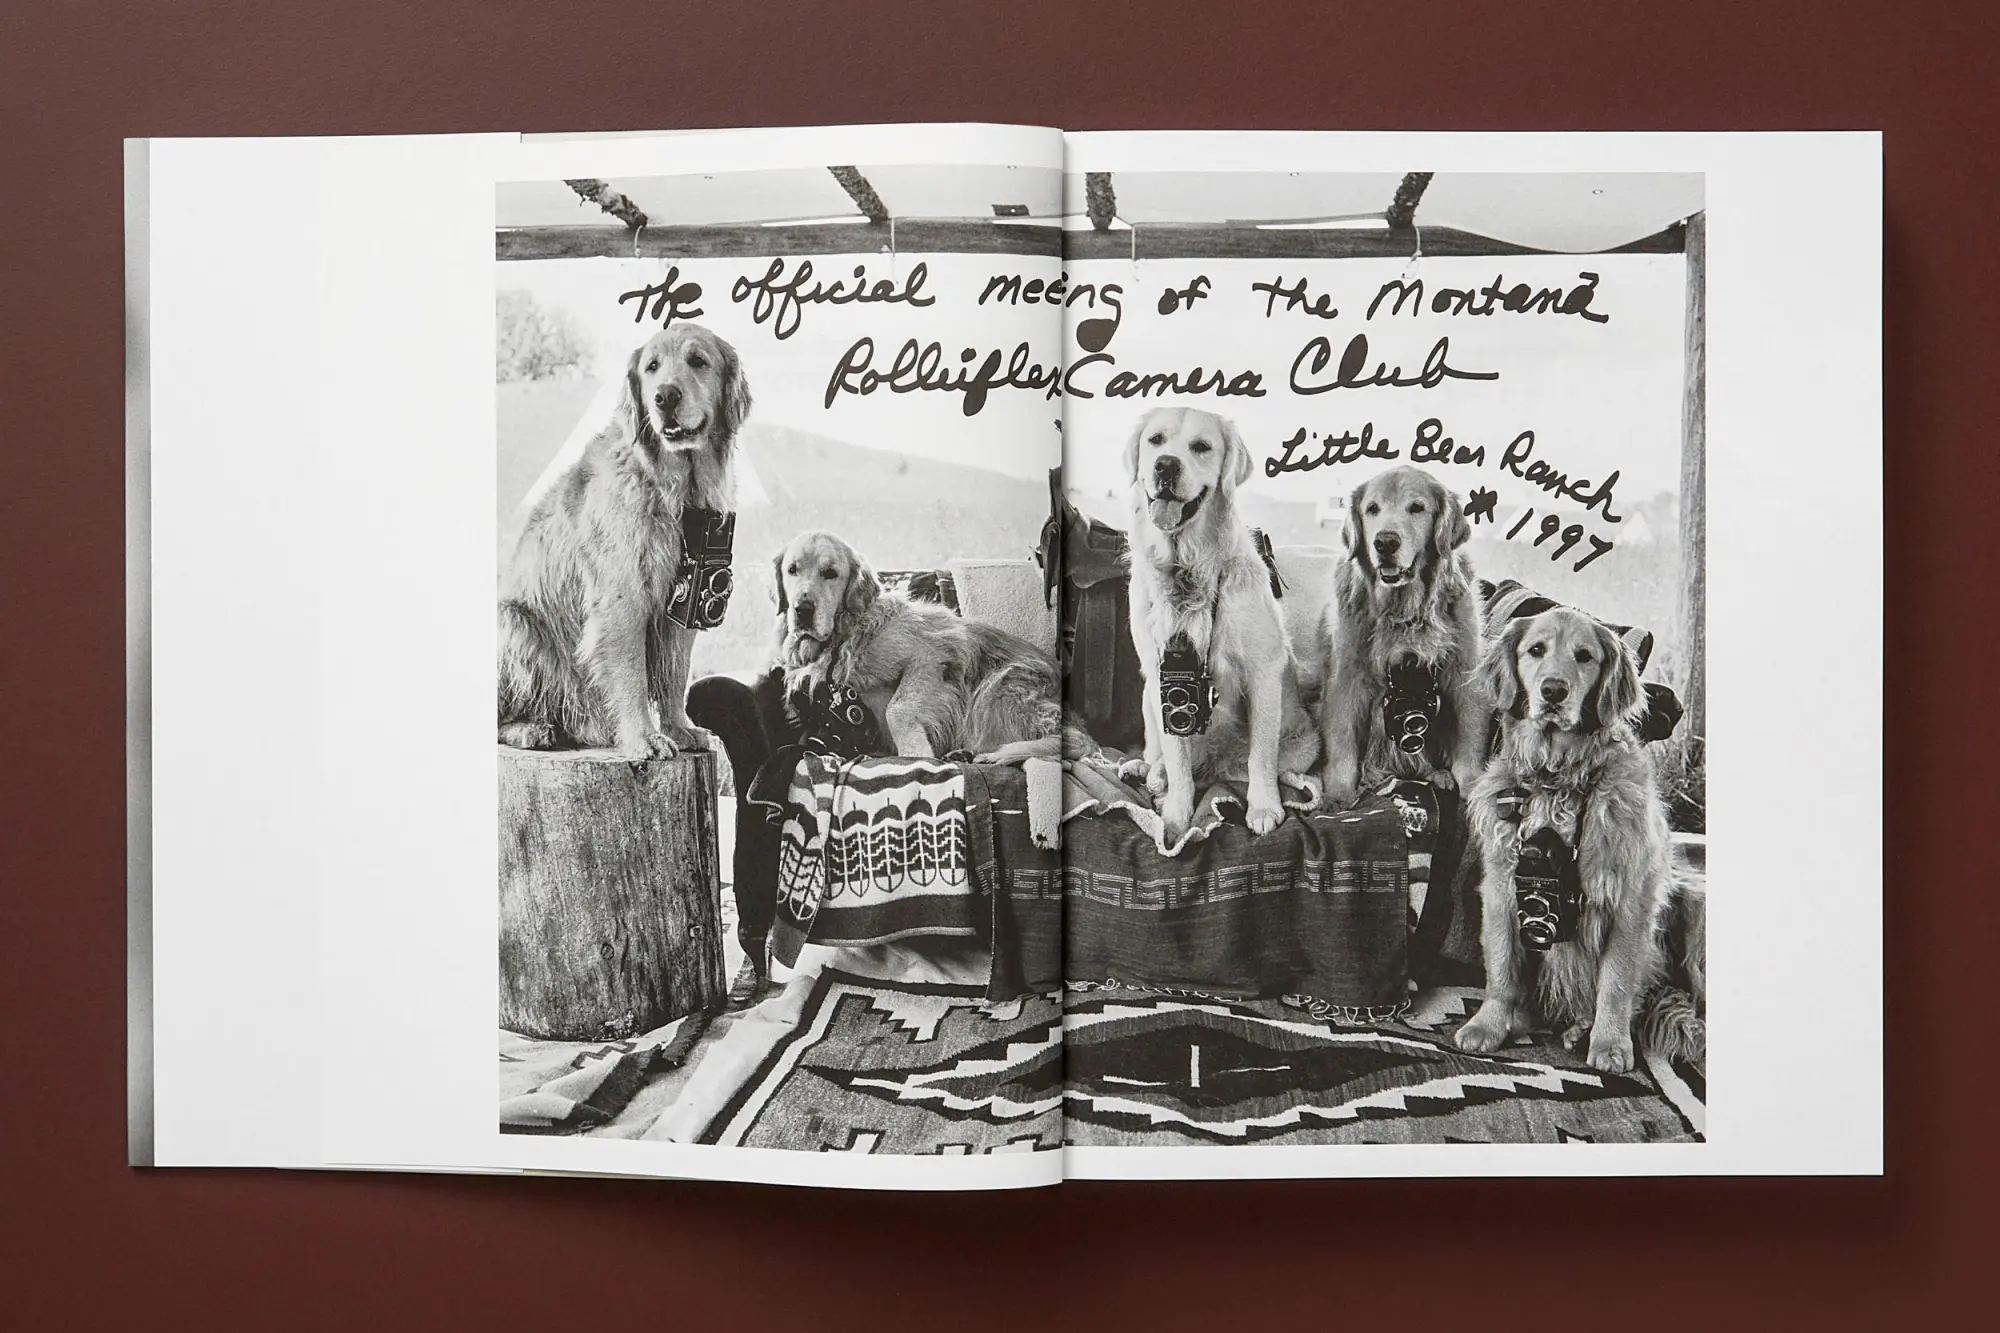 The official meeing of the Montana
Rolleiflex Camera Club
Little Bear Ranch
* 1997